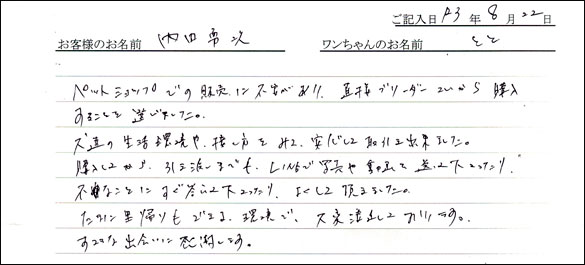 ご記入日 R3 年 8 月 22 日
お客様のお名前 内田勇次 ワンちゃんのお名前 ミミ
ペットショップでの販売に不安があり、直接ブリーダーさんから購入
することを選びました。
犬達の生活環境や、接し方をみて、安心して取引出来ました。
購入してから、引き渡しまでも、LINEで写真や動画を送って下さったり、
不安なことにすぐ答えて下さったり、よくして頂きました。
たまに里帰りもできる、環境で、大変満足しております。
すてきな出会いに感謝してます。